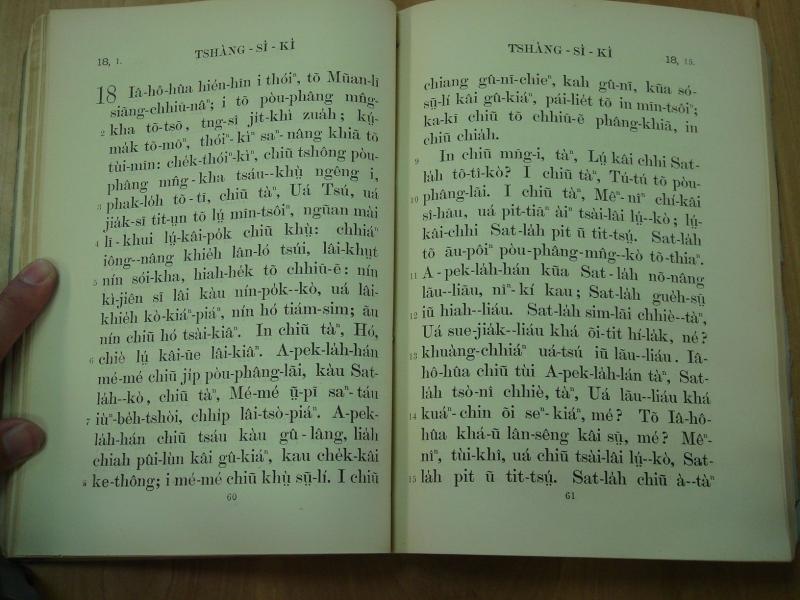 18, 1.
TSHÀNG - SÌ - KÌ
18 Iâ-hô-hûa hién-hīn i thóiⁿ, tō Mūan-lī
siāng-chhiū-nâⁿ; i tō pòu-phâng mn̂g-
2 kha tō-tsō, tng-sî ji̍t-khì zua̍h; kṳ́-
ma̍k tō-mōⁿ, thóiⁿ-kìⁿ saⁿ-nâng khiā tō
tùi-mīn: chék-thóiⁿ-kìⁿ, chiū tshông pòu-
phâng mn̂g-kha tsáu--khṳ̀ ngêng i,
3 phak-lo̍h tō-tī, chiū tàⁿ, Uá Tsú, uá
jia̍k-sĭ tit-ṳn tō lṳ́ mīn-tsôiⁿ, ngūan mài
4 lī-khui lṳ́-kâi-po̍k chiū khṳ̀: chhiáⁿ
iông--nâng khie̍h lân-ló tsúi, lâi-khut
5 nín sói-kha, hiah-hék tō chhiū-ē: nín
kì-jiên sĭ lâi kàu nín-po̍k--kò, uá lâi-
khie̍h kò-kiáⁿ-piáⁿ, nín hó tiám-sim; āu
nín chiū hó tsài-kiâⁿ. In chiū tàⁿ, Hó,
6 chiè lṳ́ kâi-ūe lâi-kiâⁿ. A-pek-la̍h-hán
mé-mé chiū ji̍p pòu-phâng-lāi, kàu Sat-
la̍h--kò, chiū tàⁿ, Mé-mé ṳ̄-pī saⁿ-táu
7 iùⁿ-be̍h-tshòi, chhip lâi-tsò-piáⁿ. A-pek-
la̍h-hán chiū tsáu kàu gû-lâng, lia̍h
chiah pûi-lùn kâi gû-kiáⁿ, kau chék-kâi
8 ke-thông; i mé-mé chiū khṳ̀ sṳ̄-lí. I chiū
60
TSHÀNG - SÌ - KÌ
18, 15.
chiang gû-nī-chieⁿ, kah gû-nī, kūa só-
sṳ̄-lí kâi gû-kiáⁿ, pái-lie̍t tō in mīn-tsôiⁿ;
ka-kī chiū tō chhiū-ē phâng-khiā, in
chiū chia̍h.
9 In chiū mn̄g-i, tàⁿ, Lṳ́ kâi chhi Sat-
la̍h tō-tî-kò? I chiū tàⁿ, Tú-tú tō pòu-
10 phâng-lāi. I chiū tàⁿ, Mêⁿ-nîⁿ chí-kâi
sî-hāu, uá pit-tiāⁿ àiⁿ tsài-lâi lṳ́--kò; lṳ́-
kâi-chhi Sat-la̍h pit ŭ tit-tsṳ́. Sat-la̍h
tō āu-pôiⁿ pòu-phâng-mn̂g--kò tō-thiaⁿ.
11 A-pek-la̍h-hán kūa Sat-la̍h nō-nâng
lāu--liāu, nîⁿ-kí kau; Sat-la̍h gue̍h-sṳ̄
12 iŭ hiah--liáu. Sat-la̍h sim-lāi chhiè--tàⁿ,
Uá sue-jia̍k--liáu khá ŏi-tit hí-la̍k, né?
13 khuàng-chhiáⁿ uá-tsú iŭ lāu--liáu. Iâ-
hô-hûa chiū tùi A-pek-la̍h-lán tàⁿ, Sat-
la̍h tsò-nî chhiè, tàⁿ, Uá lāu--liáu khá
14 kuáⁿ-chin ŏi seⁿ-kiáⁿ, mé? Tō Iâ-hô-
hûa khá-ŭ lân-sêng kâi sṳ̄, mé? Mêⁿ-
nîⁿ, tùi-khî, uá chiū tsài-lâi lṳ́--kò, Sat-
15 la̍h pit ŭ tit-tsṳ́. Sat-la̍h chiū à--tàⁿ
61